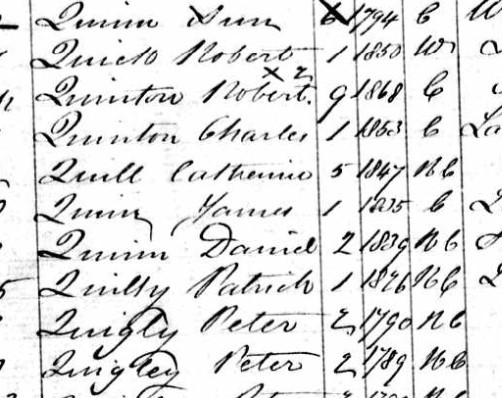 Quinn 6 1794 C W
Quick Robert 1 1850 W
x 2
Quinton Robert. 9 1868 C
Quinton Charles 1 1853 C La
Quill Catherine 5 1847 N C
Quinn James 1 C
Quinn Daniel 2 1839 N C
Patrick 1 N C
Quigly Peter 2 1790 N C
Quigley Peter 2 1789 N C